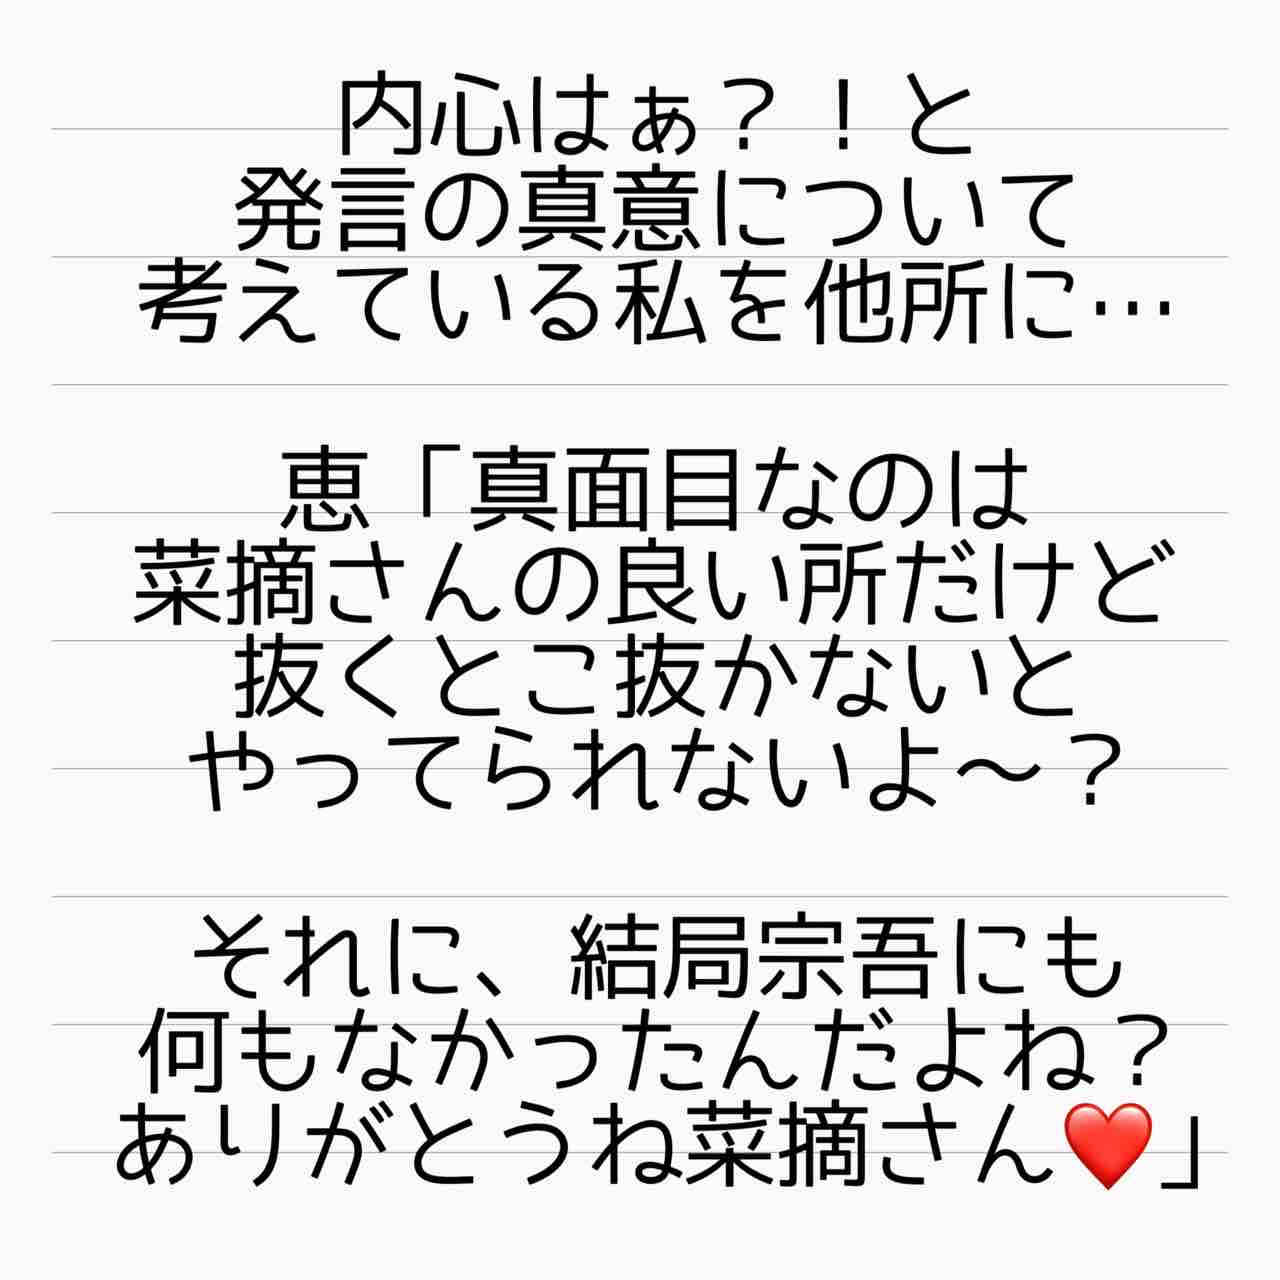 内心はぁ？！と
発言の真意について
考えている私を他所に…
恵「真面目なのは
菜摘さんの良い所だけど
抜くとこ抜かないと
やってられないよ〜？
それに、結局宗吾にも
何もなかったんだよね？
ありがとうね菜摘さん❤️」